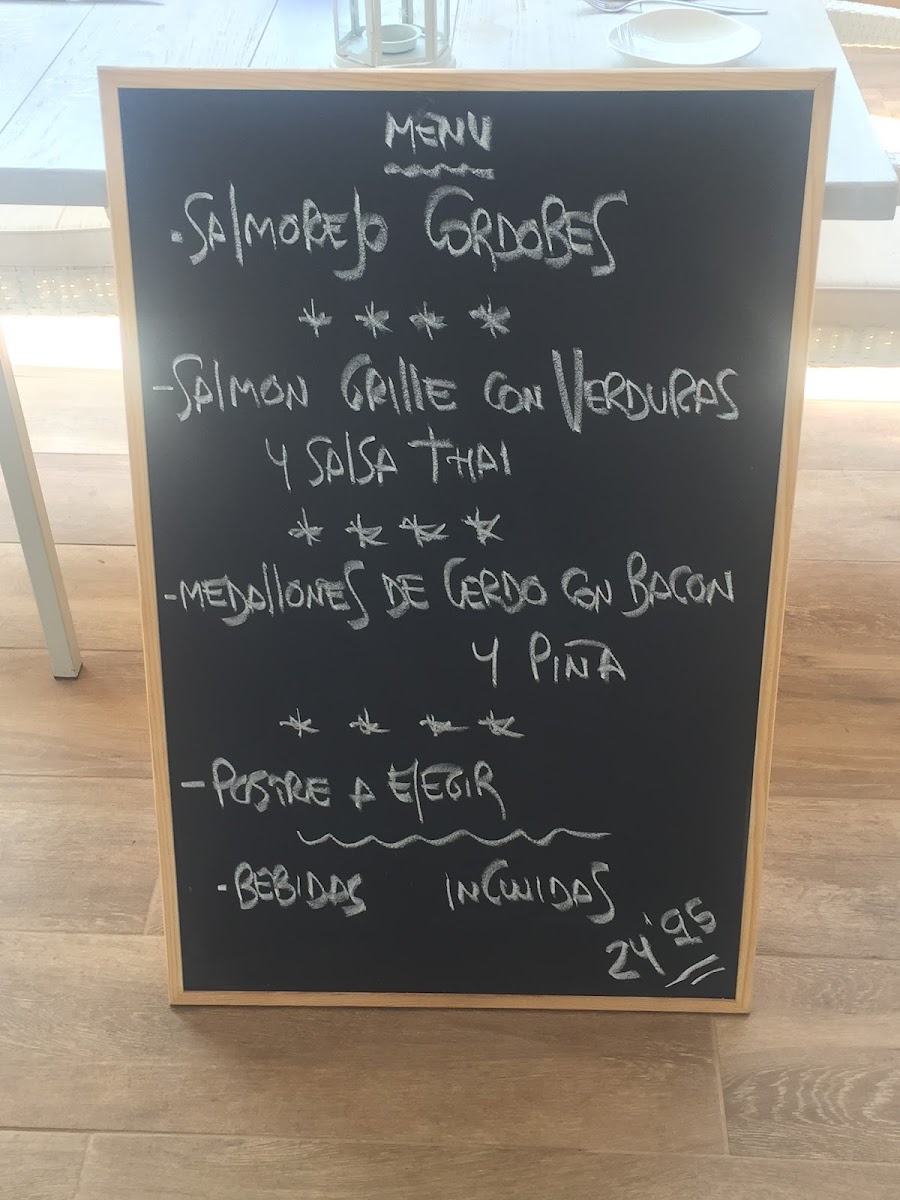 MENU
·SALMOREJO CORDOBES
* * * *
-SALMON GRILLE CON VERDURAS
Y SALSA THAI
* * * *
-MEDALLONES DE CERDO CON BACON
Y PIÑA
* * * *
-POSTRE A ELEGIR
·BEBIDAS INCLUIDAS
24'95